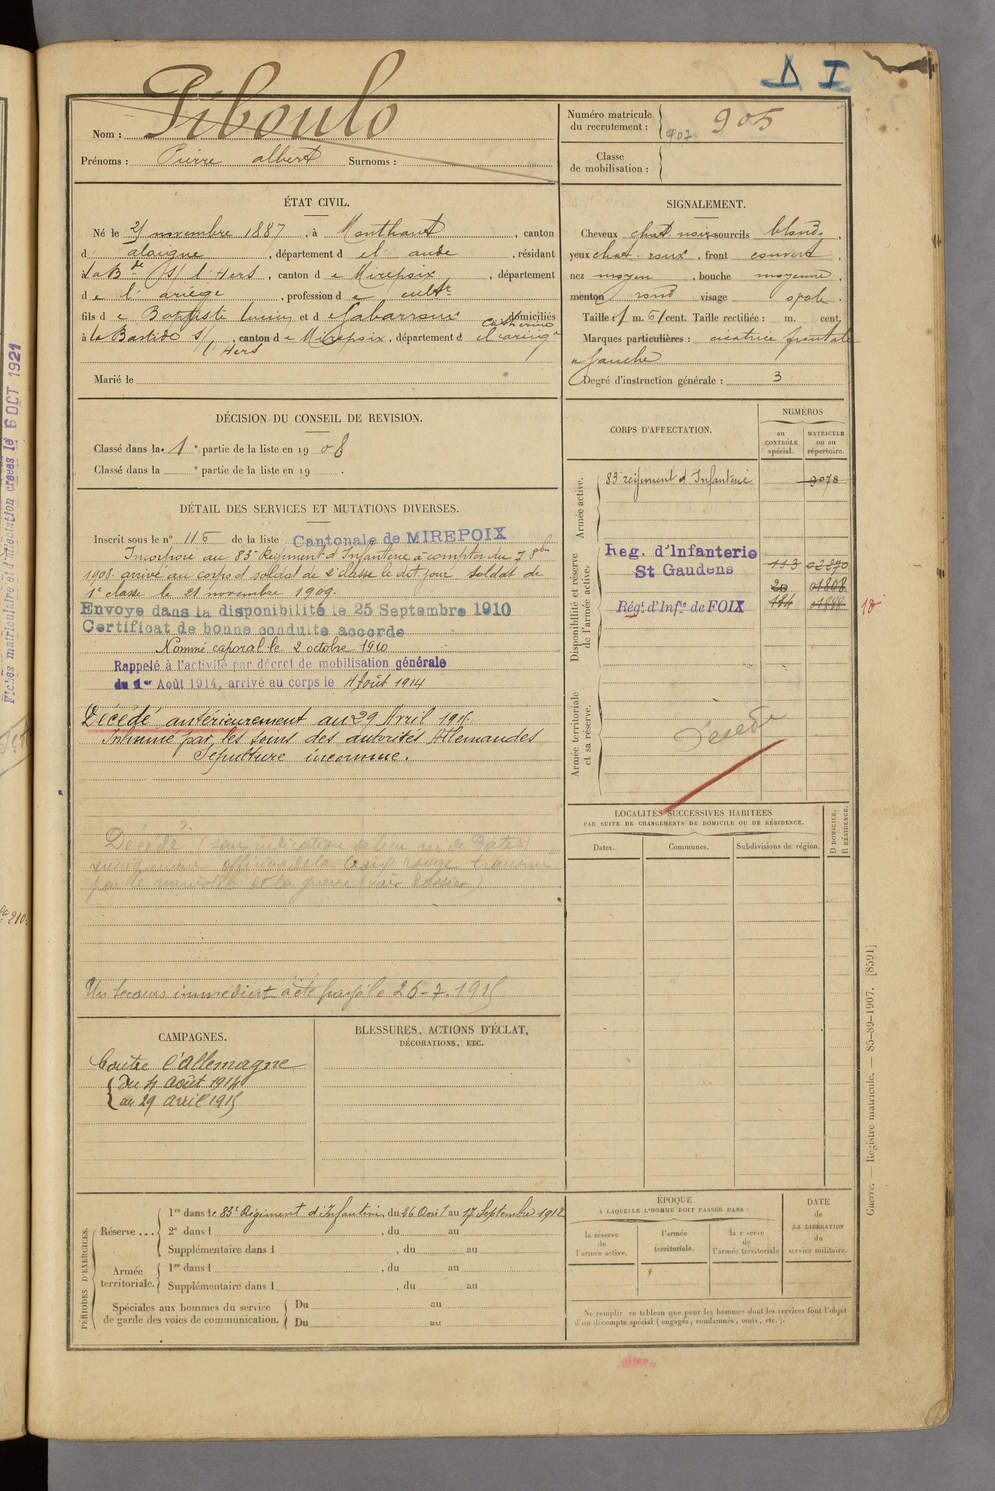 D I
Nom : Piboulo
Prénoms : Pierre albert Surnoms :
Numéro matricule du recrutement : 907 905
Classe de mobilisation :
ÉTAT CIVIL.
Né le 21 novembre 1887, à Monthaut, canton
d' alaigne, département d e l' aude, résidant
à la Bde S/ l'Hers, canton d e Mirepoix, département
d e l' ariège, profession d e cultr
fils d e Baptiste Lucien et d e Gabarrou Catherine domiciliés
à la Bastide S/ l'Hers, canton d e Mirepoix, département d e l'ariège
Marié le
SIGNALEMENT.
Cheveux chat noir sourcils blonds,
yeux chat. roux, front couvert,
nez moyen, bouche moyenne,
menton rond visage ovale.
Taille : 1 m. 61 cent. Taille rectifiée : m. cent.
Marques particulières : cicatrice frontale
a gauche
Degré d'instruction générale : 3
DÉCISION DU CONSEIL DE REVISION.
Classé dans la 1e partie de la liste en 1908
Classé dans la e partie de la liste en 19 .
DÉTAIL DES SERVICES ET MUTATIONS DIVERSES.
Inscrit sous le n° 116 de la liste Cantonale de MIREPOIX
Incorporé au 83e Régiment d'Infanterie à compter du 7 8bre
1908 arrivé au corps et soldat de 2e classe le dit jour. Soldat de
1e classe le 21 novembre 1909.
Envoye dans la disponibilité le 25 Septembre 1910
Certificat de bonne conduite accorde
Nommé caporal le 2 octobre 1910
Rappelé à l'activité par décret de mobilisation générale
du 1er Août 1914, arrivé au corps le 4 Août 1914
Décédé antérieurement au 29 Avril 1915.
Inhumé par les soins des autorités Allemandes
Sépulture inconnue.
Décédé (sans indication de lieu ni de Date)
renseignement officieux de la Croix rouge transmis
par le ministre de la guerre (voir dossier)
Un secours immédiat a été payé le 26-7-1915
CORPS D'AFFECTATION.
NUMÉROS
au CONTRÔLE spécial.
MATRICULE ou au répertoire.
Armée active.
83 régiment d'Infanterie 9078
Disponibilité et réserve de l'armée active.
Reg. d'Infanterie
St Gaudens 113 02890
20 01808
Régt d'Infie de FOIX 184 18
Armée territoriale et sa réserve.
Décédé
LOCALITÉS SUCCESSIVES HABITÉES
PAR SUITE DE CHANGEMENTS DE DOMICILE OU DE RÉSIDENCE.
Dates. Communes. Subdivisions de région. D DOMICILE. R RÉSIDENCE.
CAMPAGNES.
Contre l'Allemagne
du 4 Août 1914
au 29 avril 1915
BLESSURES, ACTIONS D'ÉCLAT,
DÉCORATIONS, ETC.
PÉRIODES D'EXERCICES.
Réserve ... 1re dans le 83e Régiment d'Infanterie, du 26 Août au 17 Septembre 1912
2e dans l , du au
Supplémentaire dans l , du au
Armée territoriale. 1re dans l , du au
Supplémentaire dans l , du au
Spéciales aux hommes du service de garde des voies de communication. Du au
Du au
ÉPOQUE
À LAQUELLE L'HOMME DOIT PASSER DANS
la réserve de l'armée active.
l'armée territoriale.
la réserve de l'armée territoriale
DATE de LA LIBÉRATION du service militaire.
Ne remplir ce tableau que pour les hommes dont les services font l'objet
d'un décompte spécial (engagés, condamnés, omis, etc.).
Guerre. — Registre matricule. — 85-89-1907. [8591]
Fiches matriculaire et d'élection créées le 6 OCT 1921